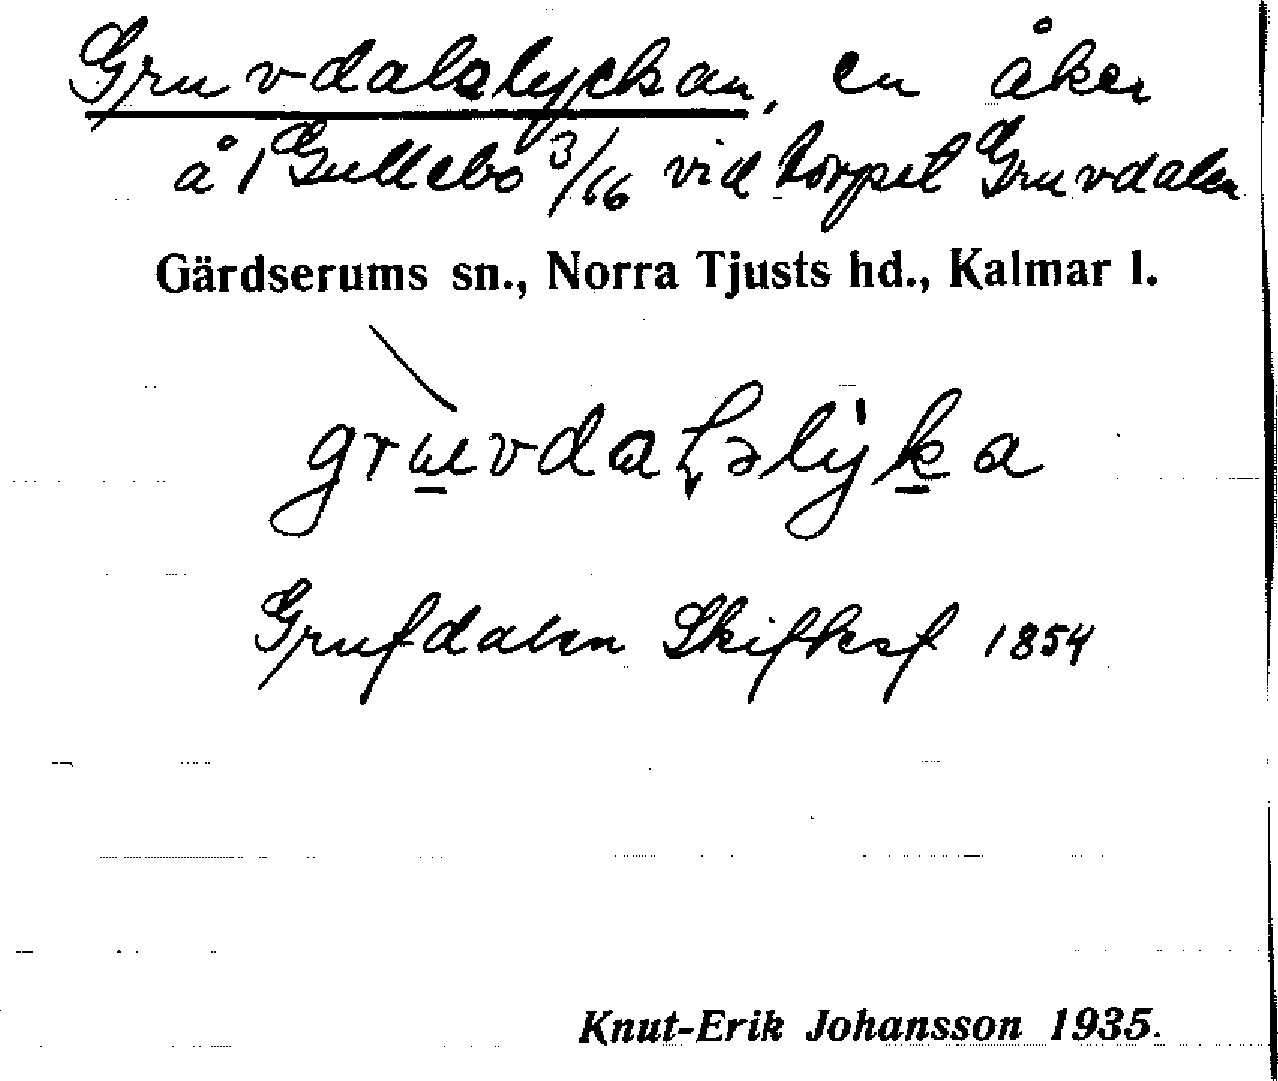 Gruvdalslyckan, en åker
å 1 Gullebo 3/66 vid torpet Gruvdalen
Gärdserums sn., Norra Tjusts hd., Kalmar l.
Grufdalen Skifteshf 1854
Knut-Erik Johansson 1935.